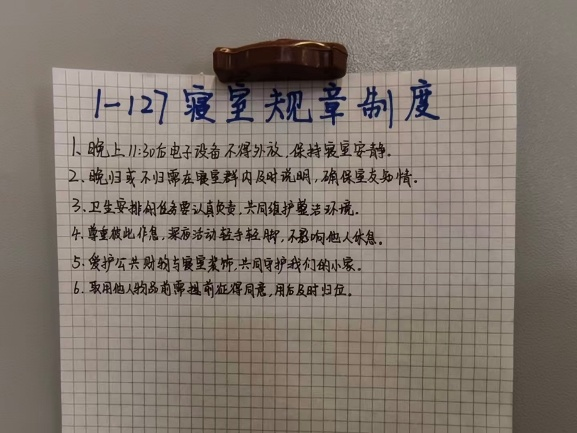 1-127寝室规章制度
1、晚上11:30后电子设备不得外放,保持寝室安静.
2、晚归或不归需在寝室群内及时说明,确保室友知情.
3、卫生安排的任务要认真负责,共同维护整洁环境.
4、尊重彼此作息,深夜活动轻手轻脚,不影响他人休息.
5、爱护公共财物与寝室装饰,共同守护我们的小家.
6、取用他人物品前需提前征得同意,用后及时归位.